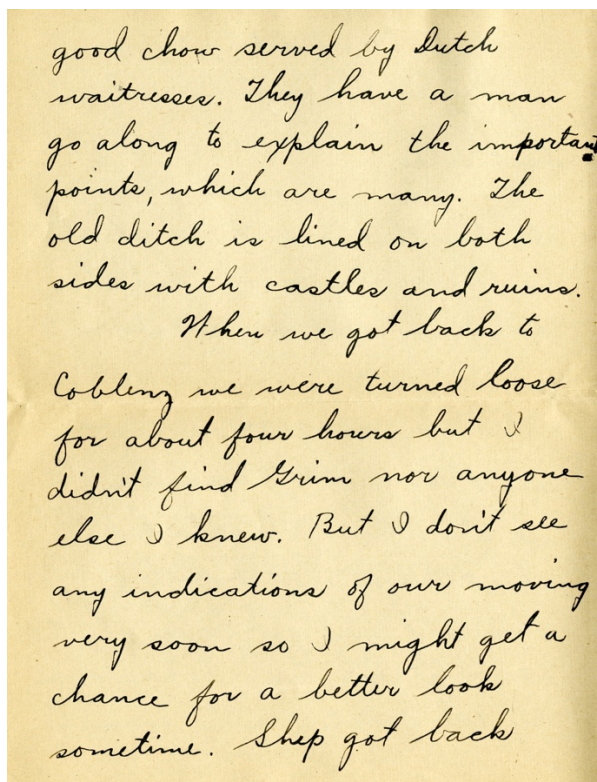 good chow served by Dutch
waitresses. They have a man
go along to explain the important
points, which are many. The
old ditch is lined on both
sides with castles and ruins.
When we got back to
Coblenz we were turned loose
for about four hours but I
didn't find Grim nor anyone
else I knew. But I don't see
any indications of our moving
very soon so I might get a
chance for a better look
sometime. Shep got back